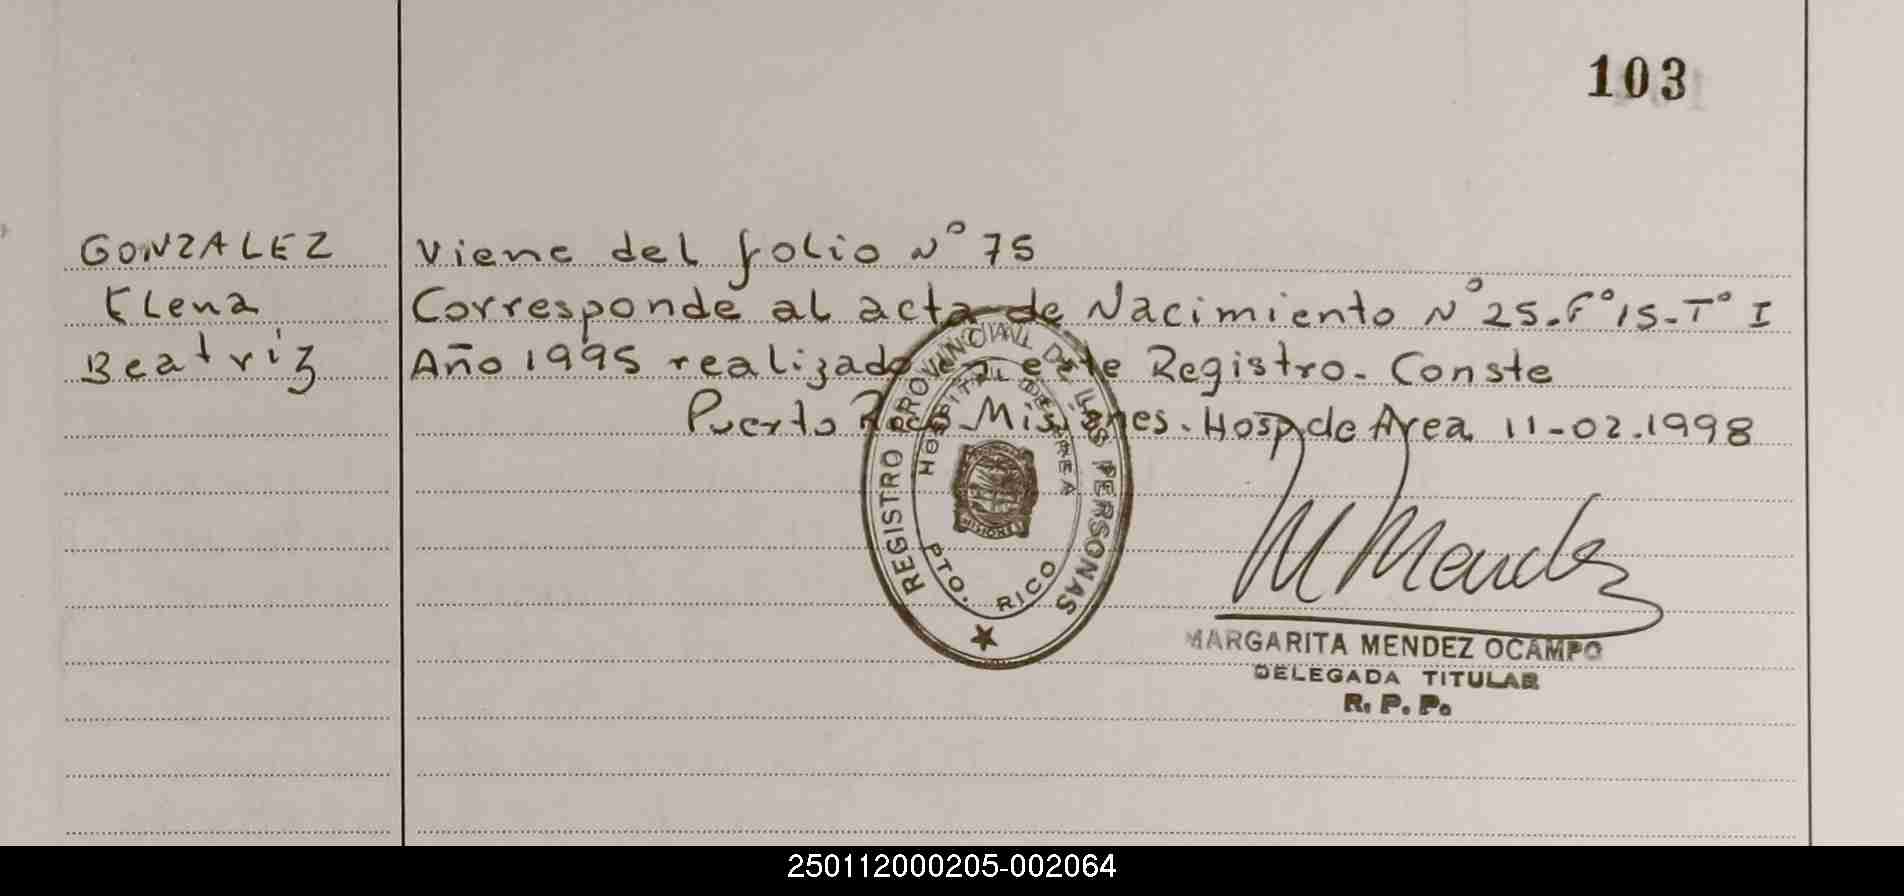 103
GONZALEZ
Elena
Beatriz
Viene del folio Nº 75
Corresponde al acta de Nacimiento Nº 25-Fº 15-Tº I
Año 1995 realizado en este Registro. Conste
Puerto Rico Misiones. Hosp de Area 11-02.1998
REGISTRO PROVINCIAL DE LAS PERSONAS
HOSPITAL DE AREA
MISIONES
PTO. RICO
M Mendez
MARGARITA MENDEZ OCAMPO
DELEGADA TITULAR
R. P. P.
250112000205-002064